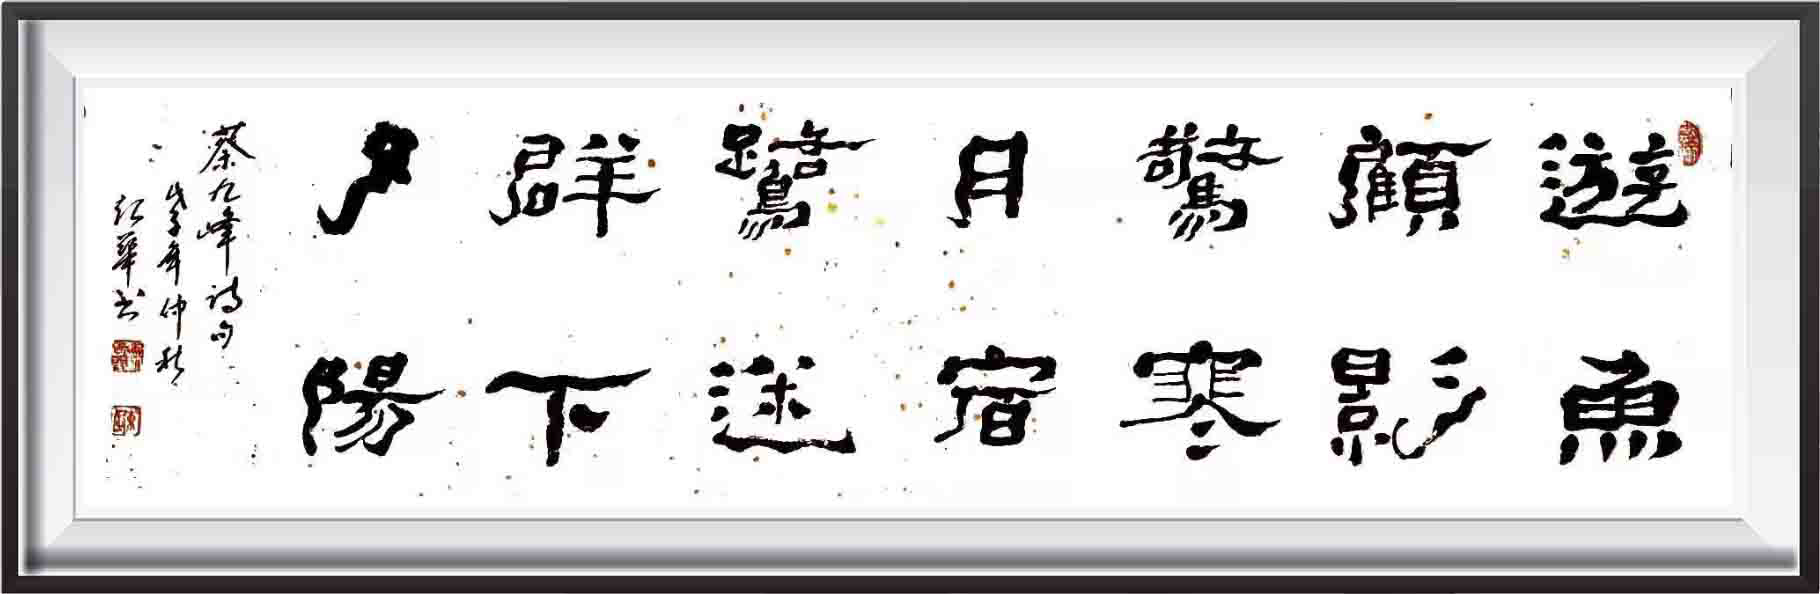 遊魚
顧影
驚寒
月宿
鷺迷
群下
夕陽
蔡九峰诗句
戊子年仲秋
红華书